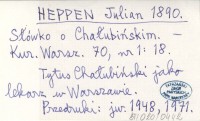 HEPPEN Julian 1890.
Słówko o Chałubińskim. —
Kur. Warsz. 70, nr 1: 18.
Tytus Chałubiński jako
lekarz w Warszawie.
Przedruki: jw. 1948, 1971.